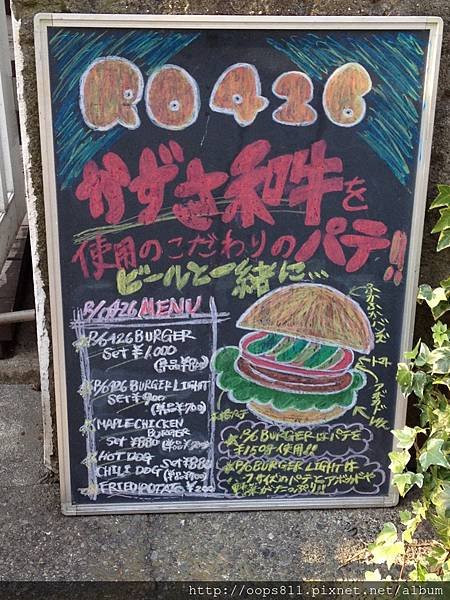 R0426
かずさ和牛を
使用のこだわりのパテ!!
ビールと一緒に…
R0426 MENU
BURGER
Set ¥1,000
(単品¥800)
BURGER LIGHT
SET ¥900
(単品¥700)
MAPLE CHICKEN
BURGER
SET ¥880
HOT DOG
CHILI DOG
SET ¥880
FRIED POTATO ¥200
ふかふかバンズ
トマト
BURGERはパテを
150g使用!!
BURGER LIGHTは
パテとアボカドや
野菜がたっぷり!!
http://oops811.pixnet.net/album